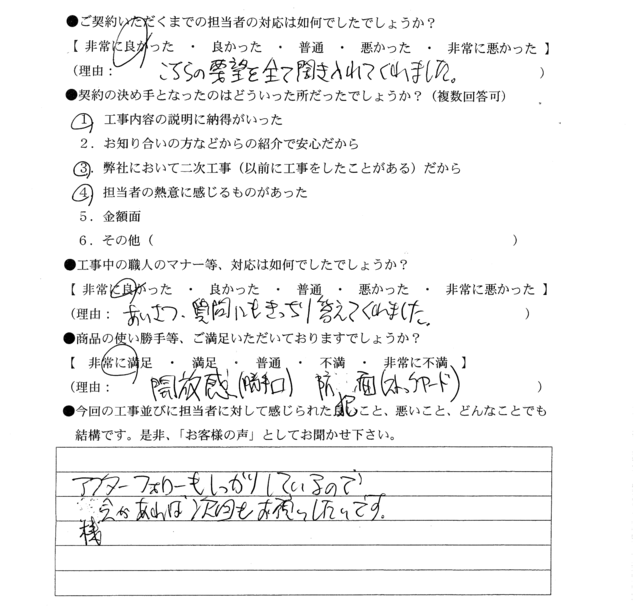 ●ご契約いただくまでの担当者の対応は如何でしたでしょうか？
【 非常に良かった ・ 良かった ・ 普通 ・ 悪かった ・ 非常に悪かった 】
（理由： こちらの要望を全て聞き入れてくれました。 ）
●契約の決め手となったのはどういった所だったでしょうか？（複数回答可）
1．工事内容の説明に納得がいった
2．お知り合いの方などからの紹介で安心だから
3．弊社において二次工事（以前に工事をしたことがある）だから
4．担当者の熱意に感じるものがあった
5．金額面
6．その他（ ）
●工事中の職人のマナー等、対応は如何でしたでしょうか？
【 非常に良かった ・ 良かった ・ 普通 ・ 悪かった ・ 非常に悪かった 】
（理由： あいさつ、質問にもきっちり答えてくれました。 ）
●商品の使い勝手等、ご満足いただいておりますでしょうか？
【 非常に満足 ・ 満足 ・ 普通 ・ 不満 ・ 非常に不満 】
（理由： 開放感(勝手口) 防犯面(ストックヤード) ）
●今回の工事並びに担当者に対して感じられた良いこと、悪いこと、どんなことでも
結構です。是非、「お客様の声」としてお聞かせ下さい。
アフターフォローもしっかりしているので
機会があれば次回もお願いしたいです。